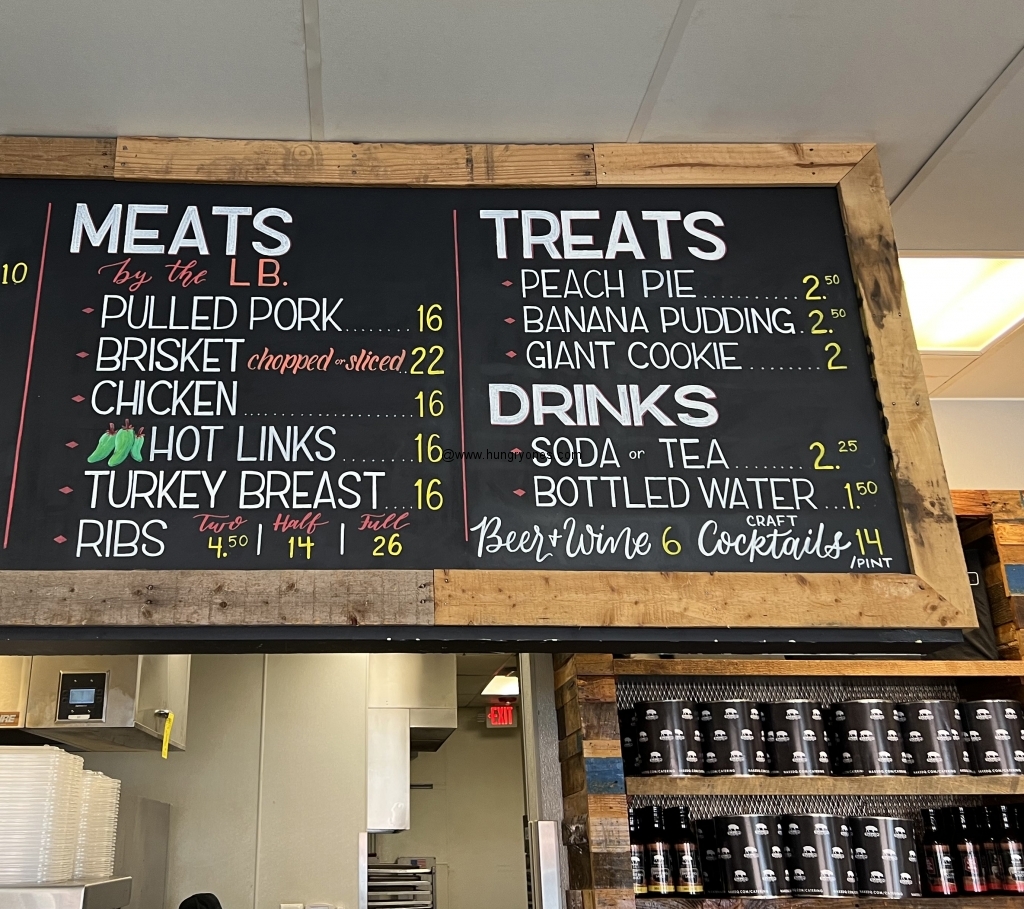 10
MEATS
by the LB.
PULLED PORK......... 16
BRISKET chopped or sliced.. 22
CHICKEN........................ 16
HOT LINKS............ 16
TURKEY BREAST... 16
RIBS Two 4.50 | Half 14 | Full 26
TREATS
PEACH PIE............... 2.50
BANANA PUDDING. 2.50
GIANT COOKIE......... 2
DRINKS
SODA or TEA......... 2.25
BOTTLED WATER... 1.50
Beer + Wine 6 CRAFT Cocktails 14 /PINT
@www.hungryones.com
EXIT